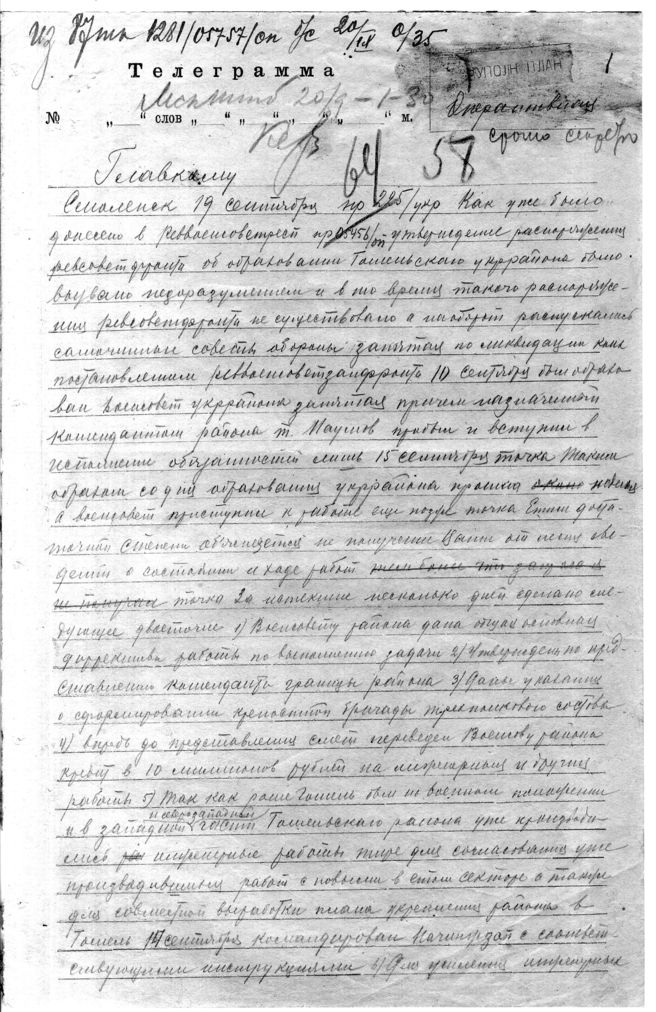 из Бук 1281/05757/оп б/с 20/IX 0/35
Телеграмма
20/9 - 1 - 30
УПОЛН ПЛАН
1
№ „ “ слов „ “ „ “ „ “ м.
Оперативная
срочно секретно
64 58
Главкому
Смоленск 19 сентября нр 225/укр Как уже было
донесено в Реввоенсоветресп нр 05456/оп утверждение распоряжения
ревсоветфронта об образовании Гомельского укррайона было
вызвано недоразумением и в то время такого распоряже-
ния ревсоветфронта не существовало а наоборот распускались
самочинные советы обороны запятая по ликвидации коих
постановлением Реввоенсоветзапфронта 10 сентября был образо
ван Военсовет укррайона запятая причем назначенный
комендантом района т. Наумов прибыл и вступил в
исполнение обязанностей лишь 15 сентября точка Таким
образом со дня образования укррайона прошла неделя
а военсовет приступил к работе еще позже точка Этим доста-
точной степени объясняется не получение Вами от меня све-
дений о состоянии и ходе работ
точка За истекшие несколько дней сделано сле-
дующее двоеточие 1) Военсовету района дана общая основная
директива работы по выполнению задачи 2) Утверждены по пред-
ставлении коменданта границы района 3) Даны указания
о сформировании крепостной бригады трехполкового состава
4) впредь до представления смет переведен Военсову района
кредит в 10 миллионов рублей на инженерныя и другия
работы 5) Так как ранее Гомель был на военном положении
и северозападной
и в западной части Гомельского района уже производи-
лись инженерные работы тире для согласования уже
производившихся работ с новыми в этом секторе а также
для совместной выработки плана укрепления района в
Гомель 17 сентября командирован Начинж с соответ-
ствующими инструкциями 6) Для усиления инженерных